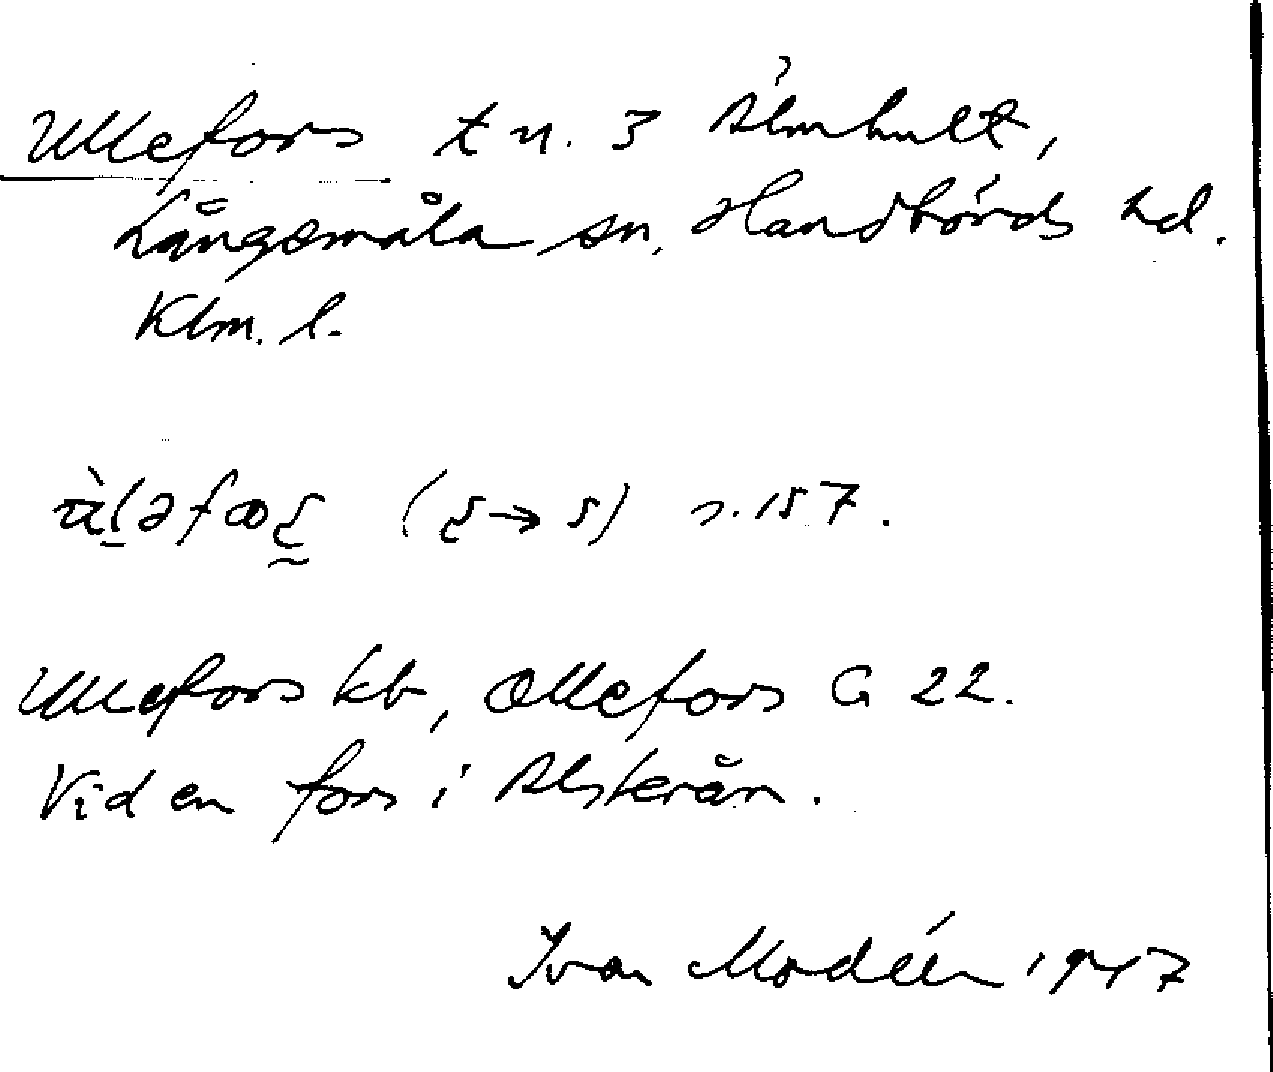 Ullefors t n. 3 Älmhult,
Långemåla sn, Handbörds hd.
Klm. l.
s. 157.
Ullefors kb, Ollefors G 22.
Vid en fors i Alsterån.
Ivan Modéer 1947